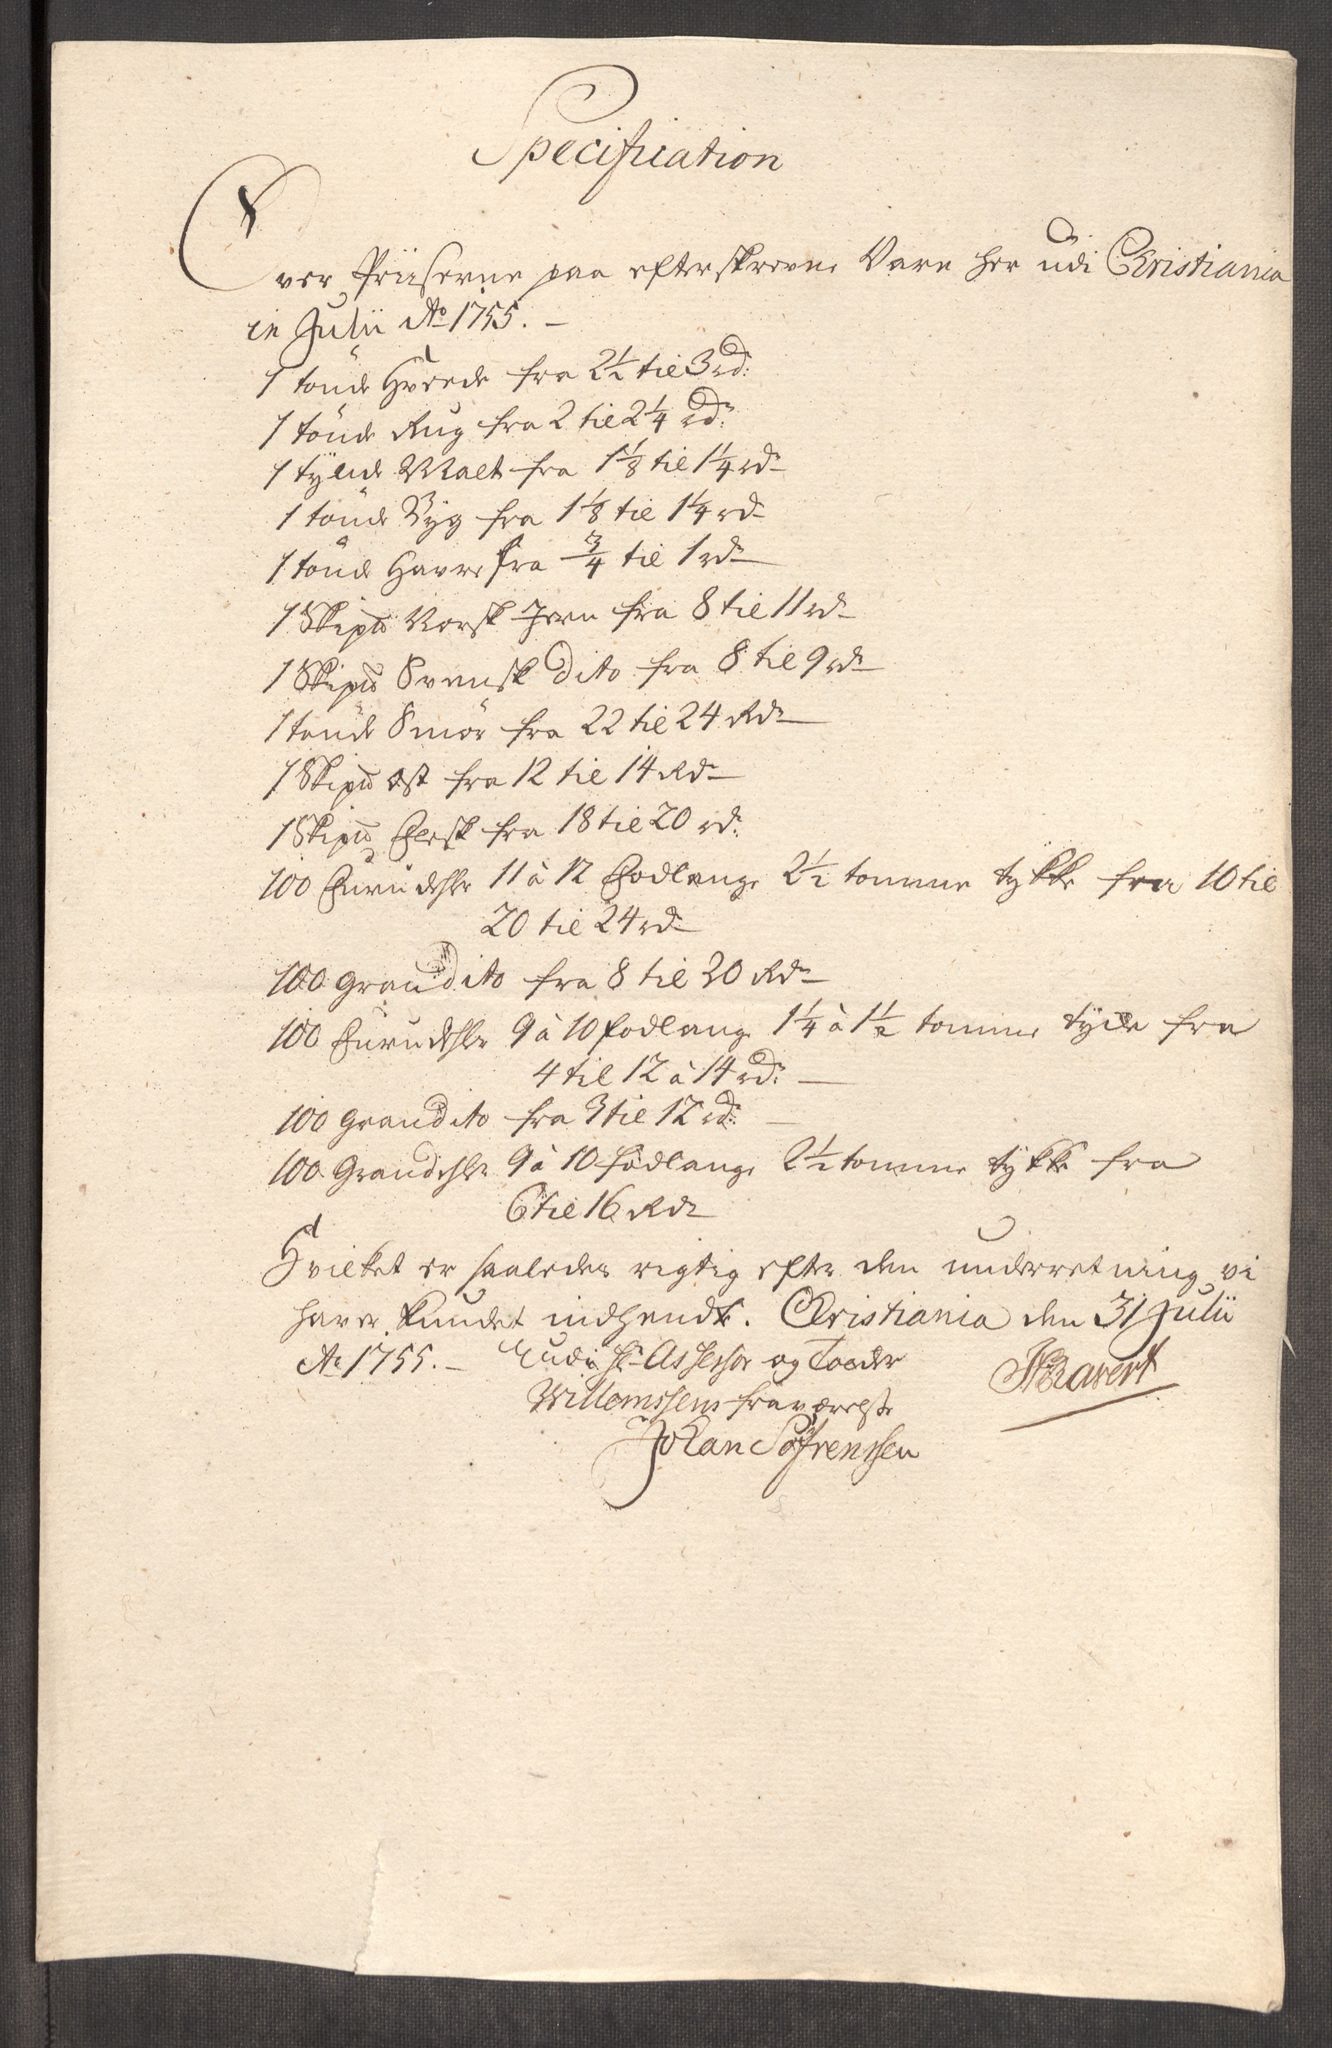 Specification
Over Priiserne paa efterskrevne Vare her udi Christiania
in Julii Ao 1755. –
1 tönde Hveede fra 2½ til 3 rd:
1 tönde Rug fra 2 til 2¼ rd:
1 tylde Malt fra 1⅛ til 1¼ rd
1 tönde Byg fra 1⅛ til 1¼ rd
1 tönde Havre fra ¾ til 1 rd
1 Skipu Norsk Jern fra 8 til 11 rd
1 Skipu Svensk Dito fra 8 til 9 rd
1 tönde Smör fra 22 til 24 Rd
1 Skipu Ost fra 12 til 14 Rd
1 Skipu Flesk fra 18 til 20 rd:
100 Furudehler 11 à 12 Fodlange 2½ tomme tykke fra 10 til
20 til 24 rd
100 Gran dito fra 8 til 20 Rd
100 Furudehler 9 à 10 fodlange 1¼ à 1½ tomme tycke fra
4 til 12 à 14 rd: –
100 Gran dito fra 3 til 12 rd: –
100 Grandehler 9 à 10 fodlange 2½ tomme tykke fra
6 til 16 Rd
Hvilket er saaledes rigtig efter den underretning vi
haver kundet indhendte. Christiania den 31 Julii
Ao 1755. – Udi Hr Assessor og
Willemssens fraværelse
Ravert
Johan Söfrenssen